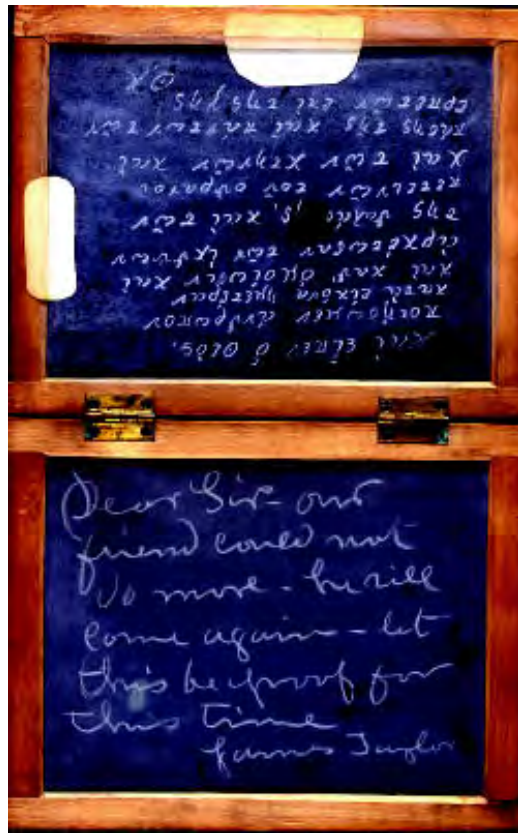 καὶ εἶπεν ὁ Θεός,
ποιήσωμεν ἄνθρωπον
κατὰ εἰκόνα ἡμετέραν
καὶ καθ' ὁμοίωσιν καὶ
ἀρχέτωσαν τῶν ἰχθύων
τῆς καὶ τῶν
πετεινῶν τοῦ οὐρανοῦ
καὶ τῶν κτηνῶν καὶ
πάσης τῆς καὶ πάντων τῶν
ἑρπετῶν ἐπὶ τῆς γῆς
Dear Sir – our
friend could not
do more – he will
come again – let
this be proof for
this time
James Taylor